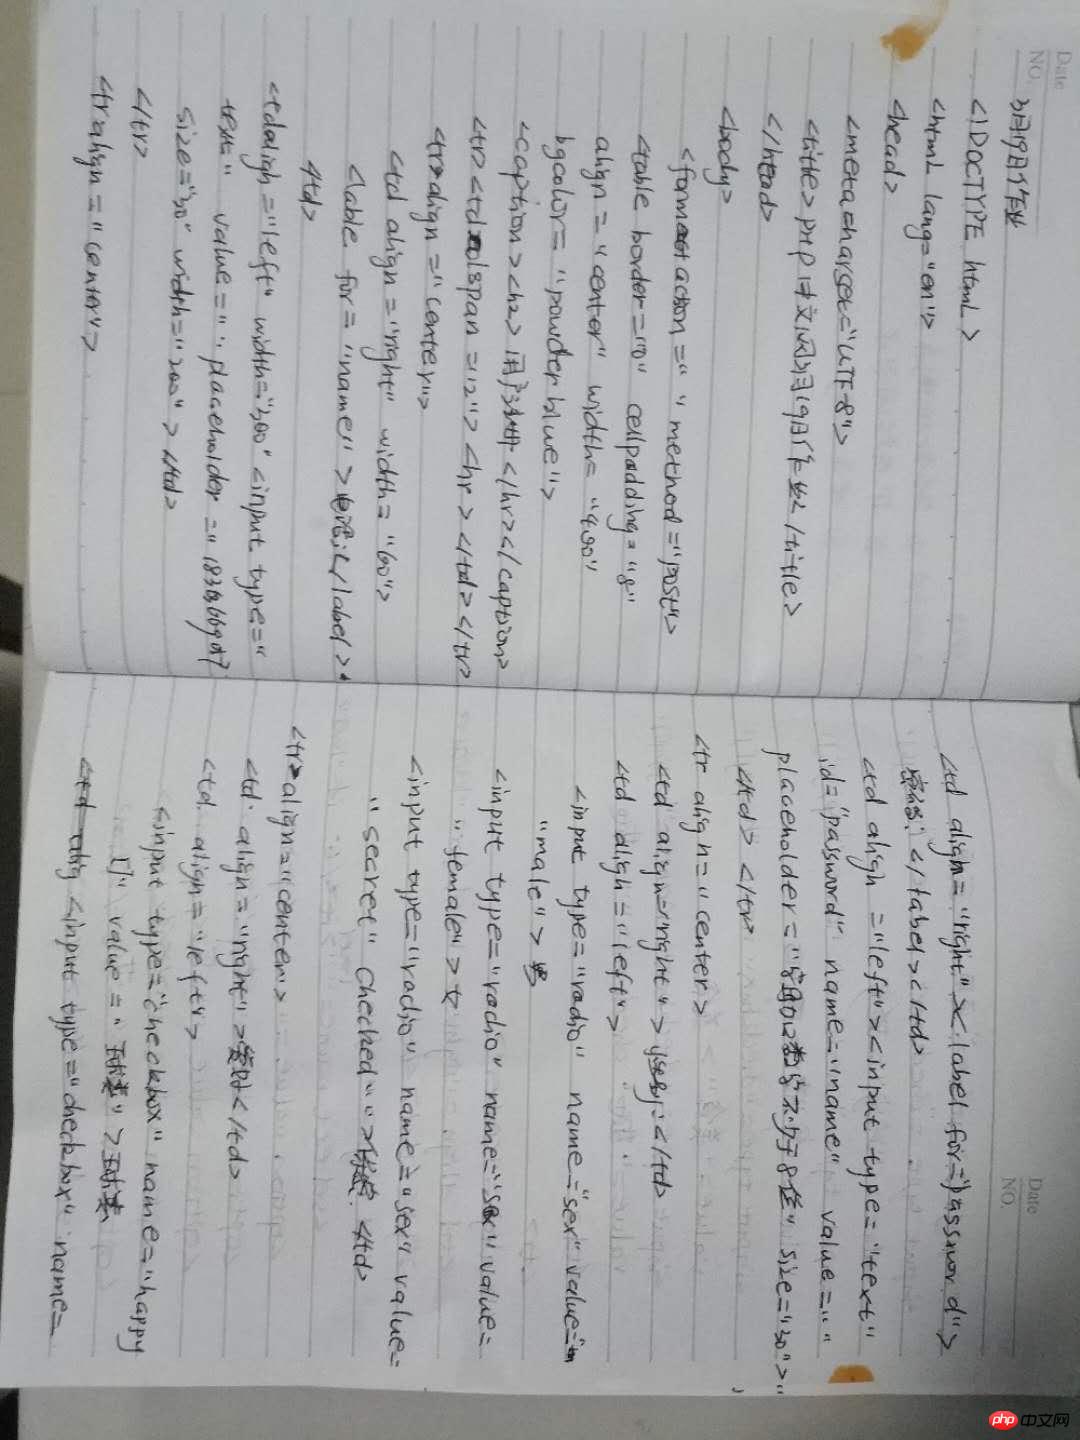 Date
NO.
3月19日作业
<!DOCTYPE html>
<html lang="en">
<head>
<meta charset="UTF-8">
<title>PHP中文网3月19日作业</title>
</head>
<body>
<form action=" " method="post">
<table border="0" cellpadding="8"
align="center" width="400"
bgcolor="powderblue">
<caption><h2>用户注册</hr></caption>
<tr><td colspan="2"><hr></td></tr>
<tr align="center">
<td align="right" width="60">
<lable for="name">
</label>
<td>
<td align="left" width="300" <input type="
text" value=" placeholder="
size="30" width="200"></td>
</tr>
<tr align="center">
Date
NO.
<td align="right"><label for="password">
密码:</label></td>
<td align="left"><input type="text"
id="password" name="name" value=" "
placeholder=" size="30">
</td></tr>
<tr align="center>
<td align="right">性别:</td>
<td align="left">
<input type="radio" name="sex" value="m
"male">男
<input type="radio" name="sex" value=
"female">女
<input type="radio" name="sex" value=
"secret" checked" ">保密 </td>
<tr align="center>
<td align="right">爱好</td>
<td align="left">
<input type="checkbox" name="happy
[]" value="
<input type="checkbox" name=
php 中文网